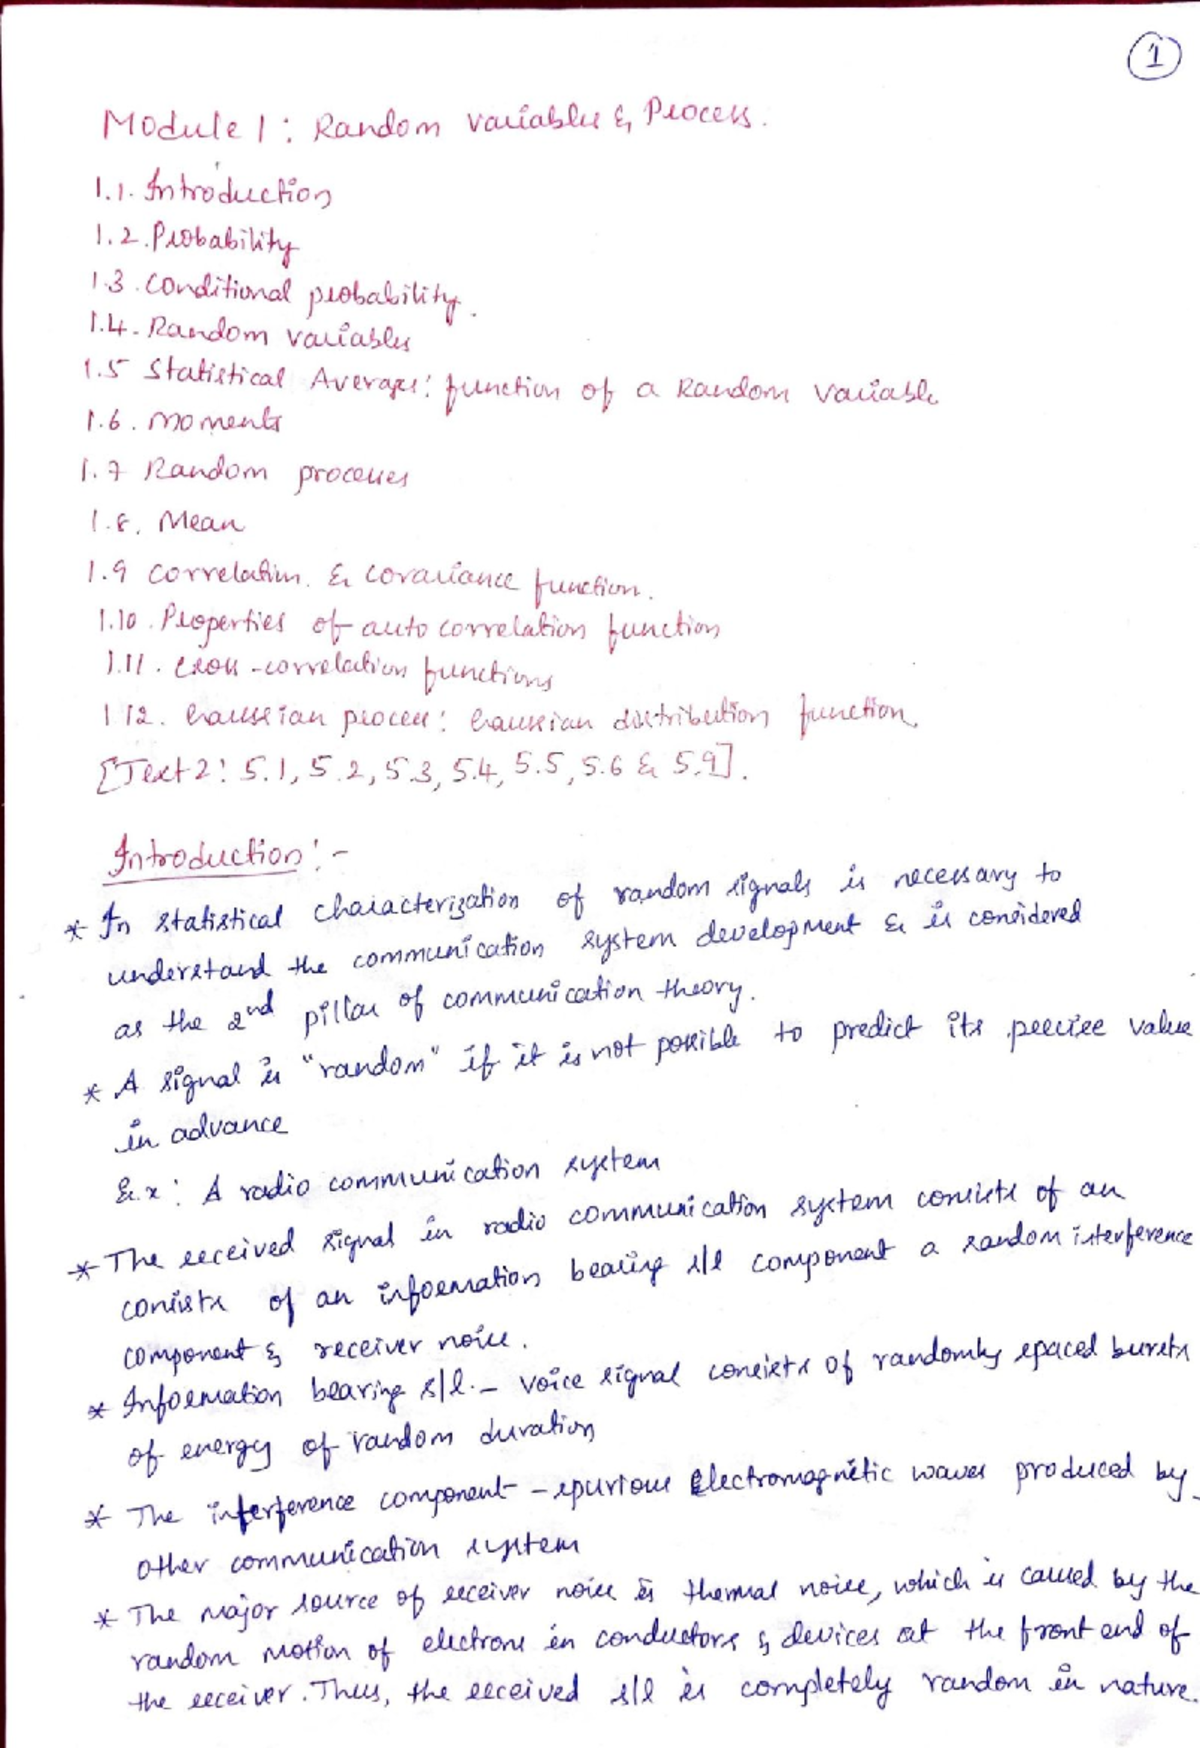 1
Module 1 : Random variables & Process.
1.1. Introduction
1.2. Probability
1.3. Conditional probability.
1.4. Random variables
1.5 Statistical Averages: function of a Random Variable
1.6. Moments
1.7 Random processes
1.8. Mean
1.9 Correlation. & Covariance function.
1.10. Properties of auto correlation function
1.11. Cross-correlation functions
1.12. Gaussian process: Gaussian distribution function.
[Text 2: 5.1, 5.2, 5.3, 5.4, 5.5, 5.6 & 5.9].
Introduction:-
* In statistical characterization of random signals is necessary to
understand the communication system development & is considered
as the 2nd pillar of communication theory.
* A signal is "random" if it is not possible to predict its precise value
in advance
Ex: A radio communication system
* The received signal in radio communication system consists of an
consists of an information bearing s/l component a random interference
component & receiver noise.
* Information bearing s/l. – voice signal consists of randomly spaced bursts
of energy of random duration
* The interference component – spurious Electromagnetic waves produced by
other communication system
* The major source of receiver noise is thermal noise, which is caused by the
random motion of electrons in conductors & devices at the front end of
the receiver. Thus, the received s/l is completely random in nature.